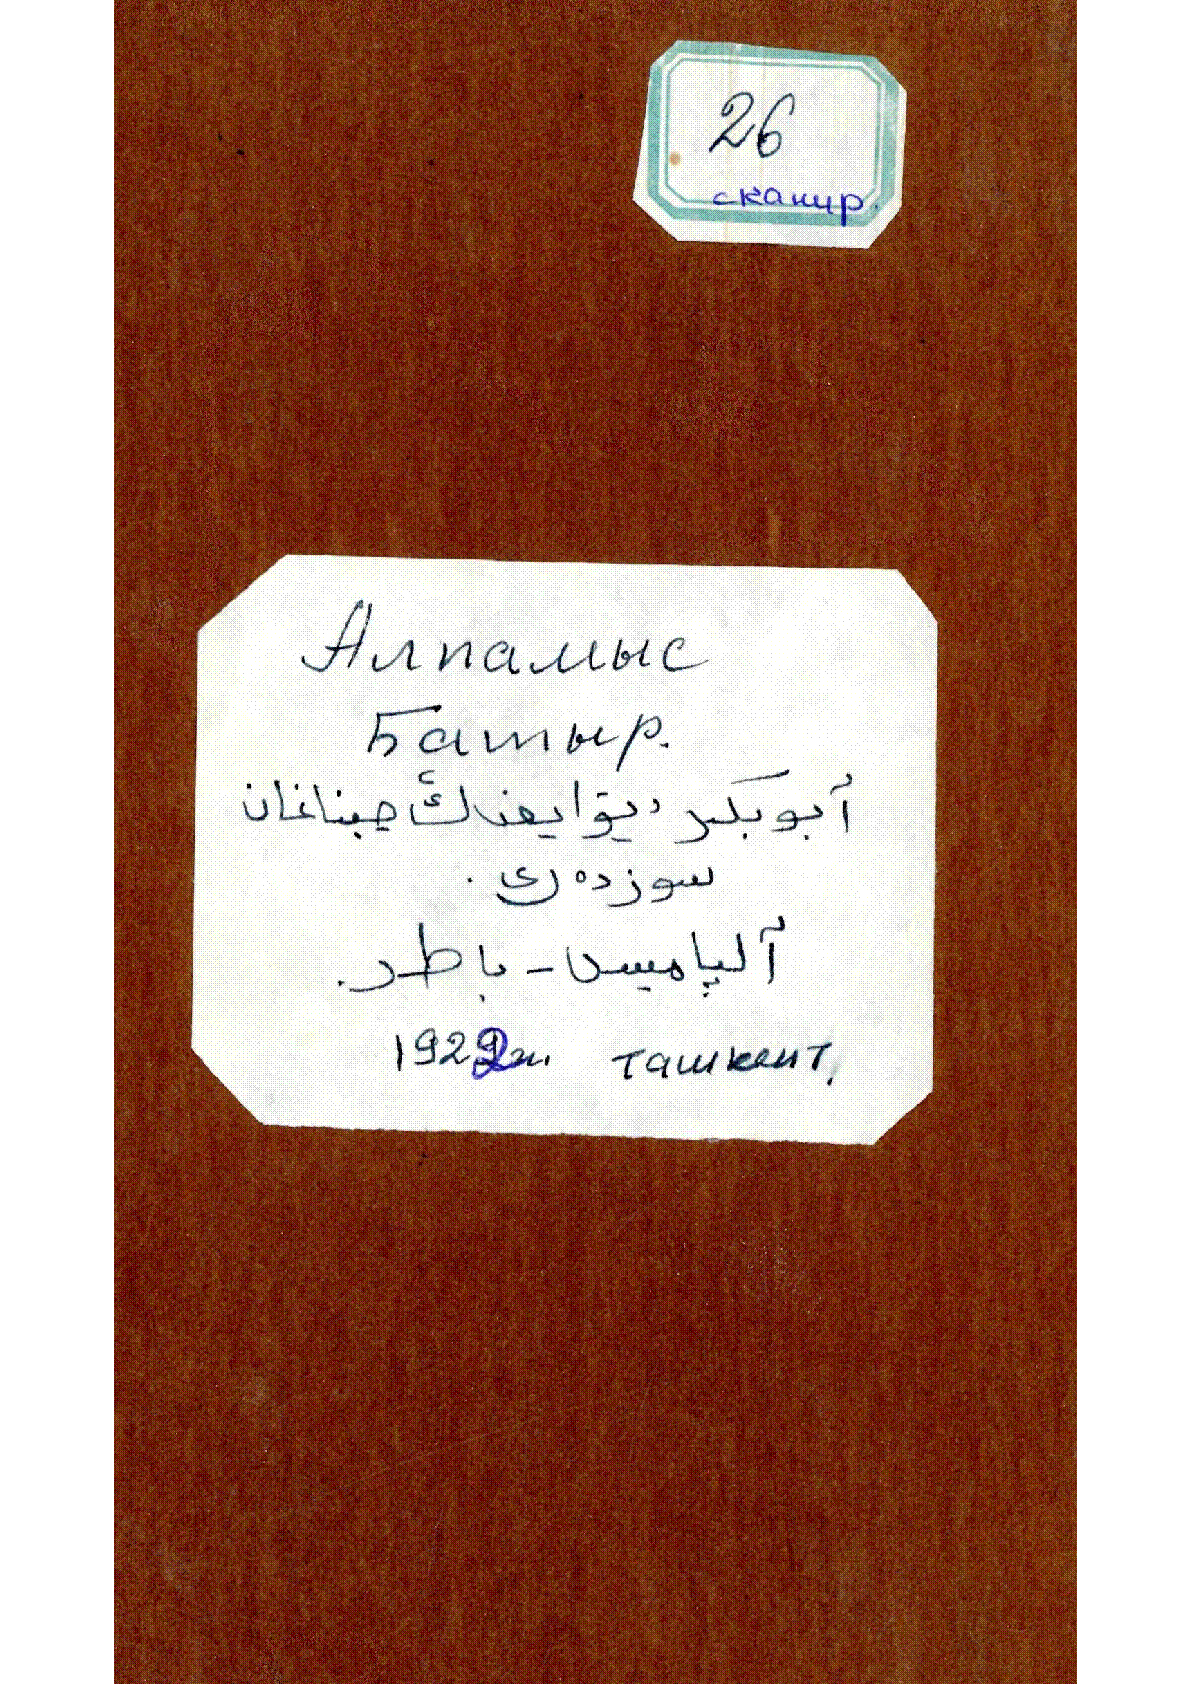 26
сканир.
Алпамыс
Батыр.
أبوبكر ديۋايفنڭ جيناغان
سوزدەرى.
آلپاميس - باطر.
1922ж. ташкент,